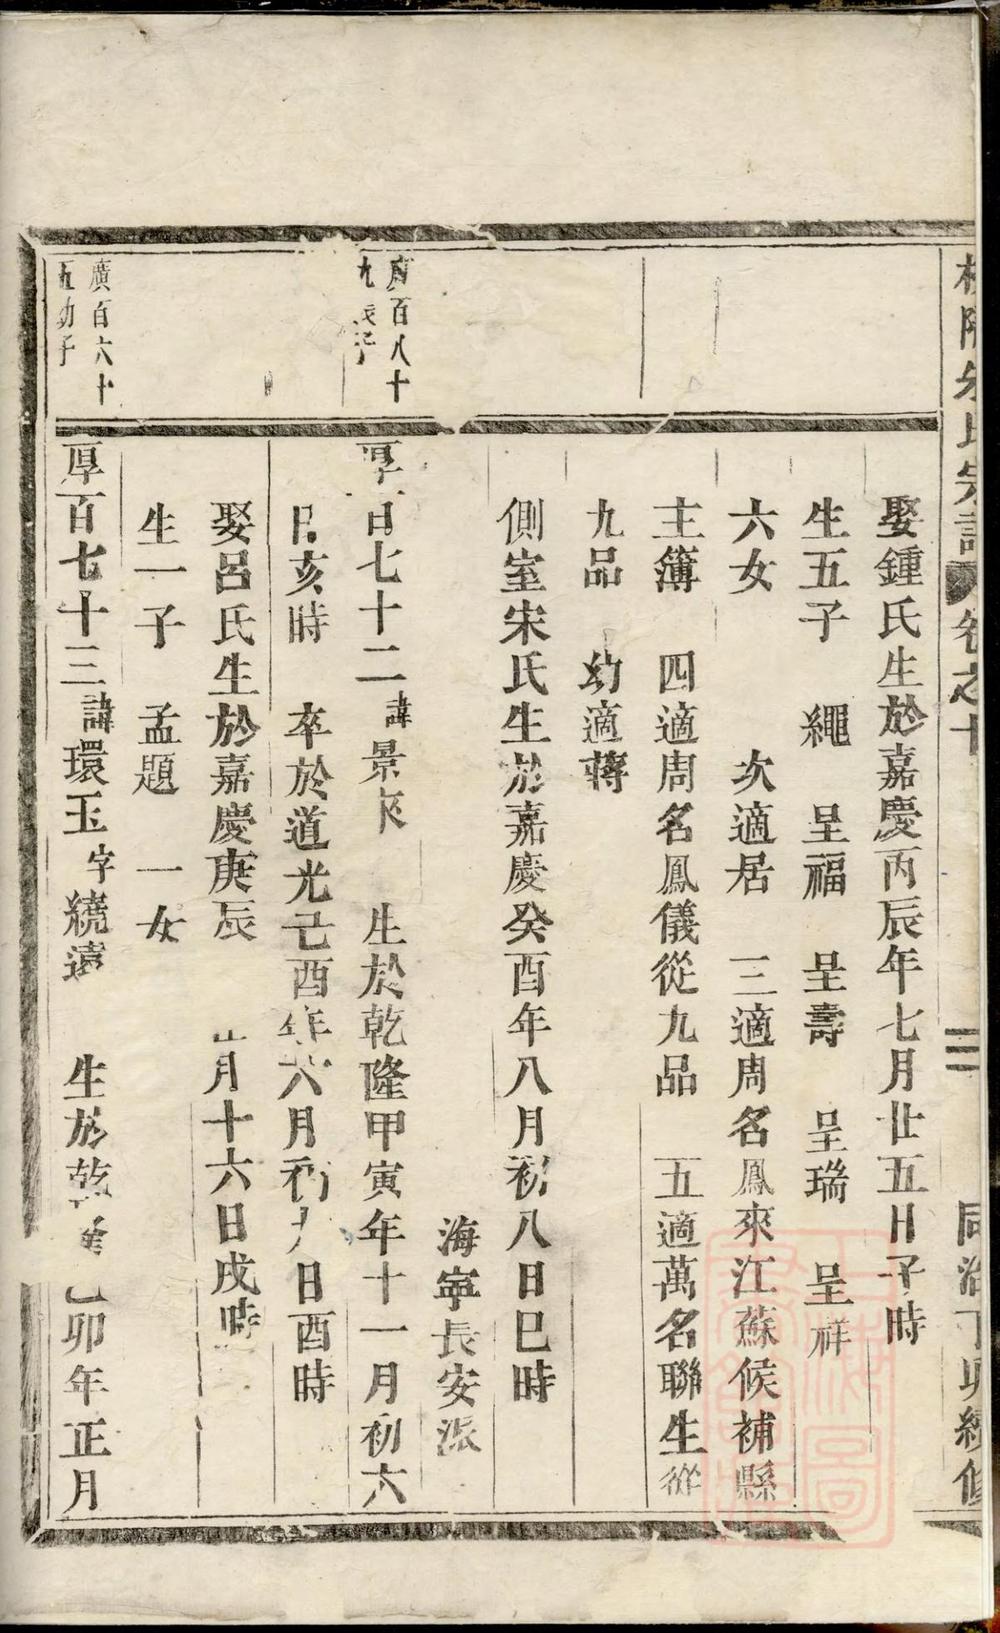 朱氏宗譜 卷之十 三 同治丁卯續修
娶鍾氏生於嘉慶丙辰年七月廿五日子時
生五子 繩 呈福 呈壽 呈瑞 呈祥
六女 次適居 三適周名鳳來江蘇候補縣
主簿 四適周名鳳儀從九品 五適萬名聯生從
九品 幼適蔣
側室宋氏生於嘉慶癸酉年八月初八日巳時
海寧長安派
廣百八十
九長子
厚百七十二諱景 生於乾隆甲寅年十一月初六
日亥時 卒於道光己酉年六月初九日酉時
娶呂氏生於嘉慶庚辰 月十六日戌時
生一子 孟題 一女
廣百六十
五幼子
厚百七十三諱環玉字繞遠 生於乾隆乙卯年正月